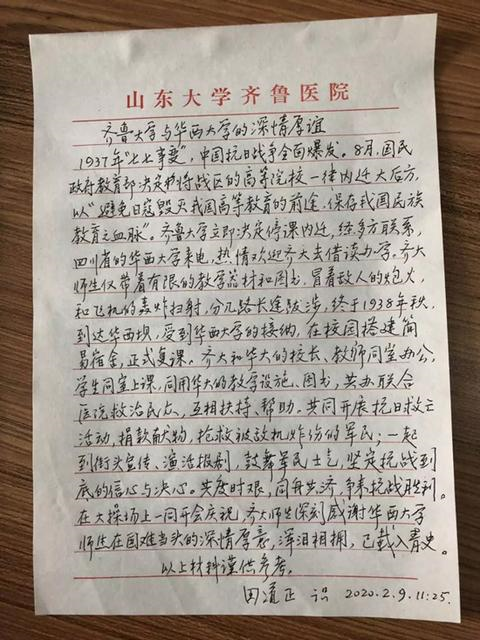 山东大学齐鲁医院
齐鲁大学与华西大学的深情厚谊
1937年“七七事变”,中国抗日战争全面爆发。8月,国民
政府教育部决定将战区的高等院校一律内迁大后方,
以“避免日寇毁灭我国高等教育的前途,保存我国民族
教育之血脉”。齐鲁大学立即决定停课内迁,经多方联系,
四川省的华西大学来电,热情欢迎齐大去借读办学。齐大
师生仅带着有限的教学器材和图书,冒着敌人的炮火,
和飞机的轰炸扫射,分几路长途跋涉,终于1938年秋,
到达华西坝,受到华西大学的接纳,在校园搭建简
易宿舍,正式复课。齐大和华大的校长、教师同堂办公,
学生同堂上课,同用华大的教学设施、图书,共办联合
医院救治民众,互相扶持、帮助。共同开展抗日救亡
活动,捐款献物,抢救被敌机炸伤的军民;一起
到街头宣传、演活报剧,鼓舞军民士气,坚定抗战到
底的信心与决心。共度时艰,同舟共济,争来抗战胜利。
在大操场上一同开会庆祝,齐大师生深刻感谢华西大学
师生在国难当头的深情厚意,浑泪相拥,已载入青史。
以上材料谨供参考。
田道正 识 2020.2.9.11:25.